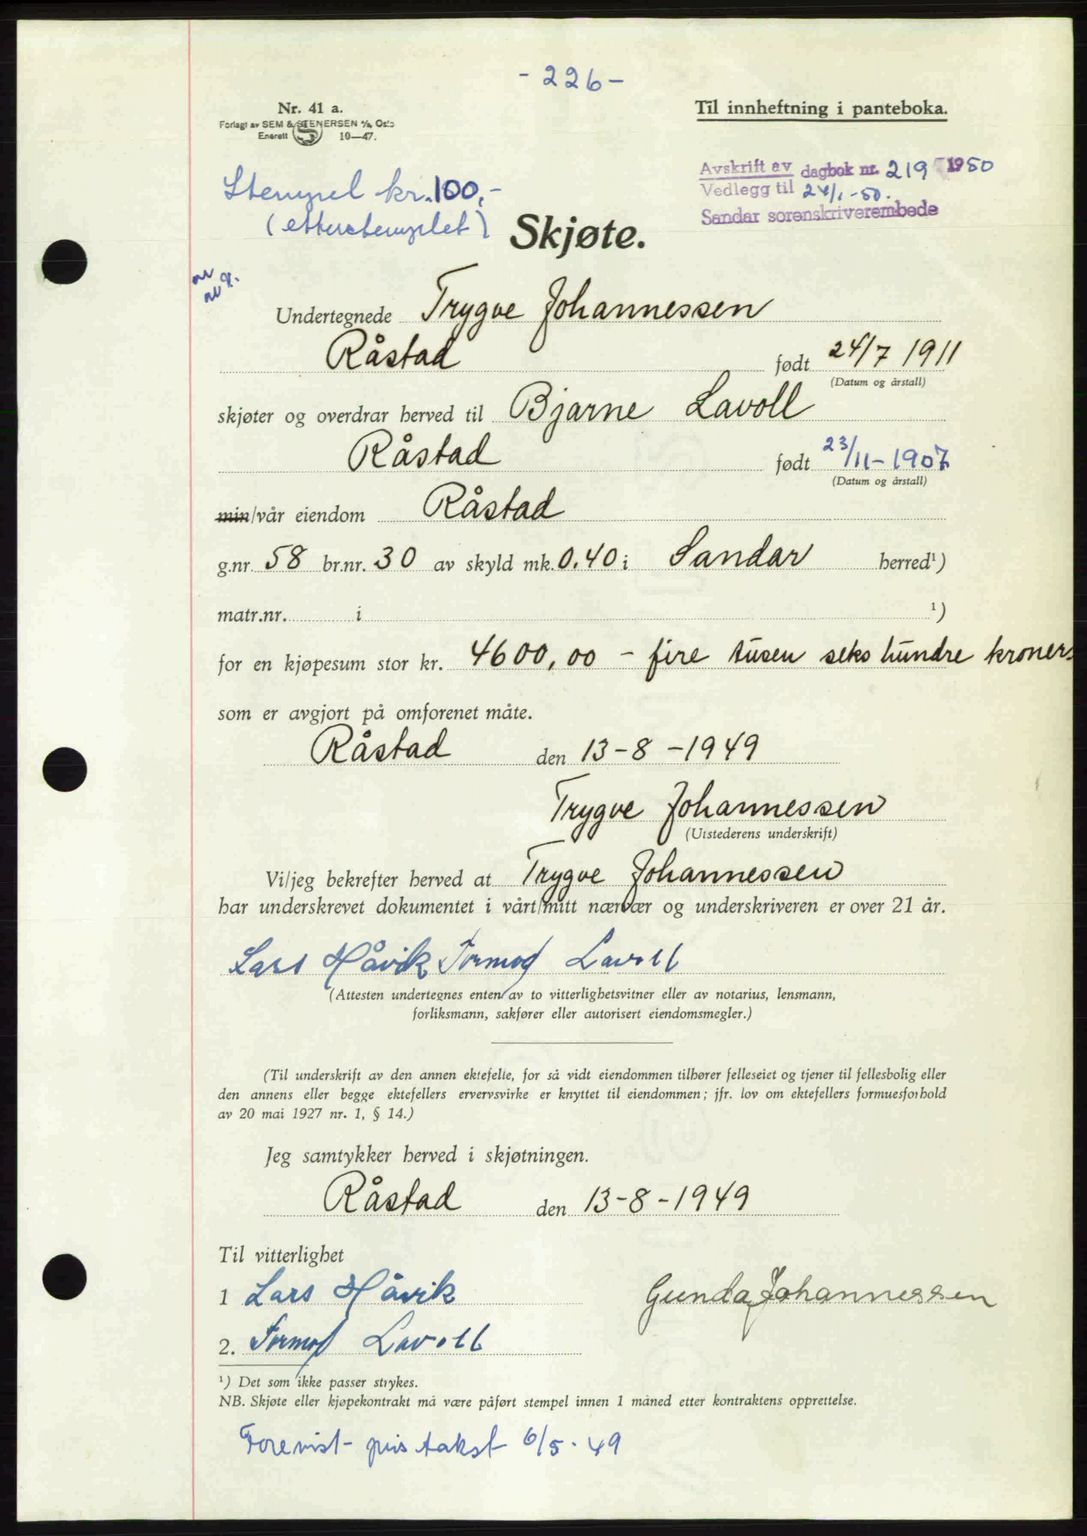 -226-
Nr. 41 a.
Til innheftning i panteboka.
Forlagt av SEM & STENERSEN A/S, Oslo
Enerett S 10—47.
Avskrift av dagbok nr. 219 1950
Vedlegg til 24/1-50.
Sandar sorenskriverembede
Stempel kr. 100,-
(etterstemplet)
Skjøte.
Undertegnede Trygve Johannessen
Råstad født 24/7 1911
(Datum og årstall)
skjøter og overdrar herved til Bjarne Lavoll
Råstad født 23/11-1907
(Datum og årstall)
min/vår eiendom Råstad
g.nr. 58 br.nr. 30 av skyld mk. 0.40 i Sandar herred¹)
matr.nr. i ¹)
for en kjøpesum stor kr. 4600,00 - fire tusen seks hundre kroner
som er avgjort på omforenet måte.
Råstad den 13-8-1949
Trygve Johannessen
(Utstederens underskrift)
Vi/jeg bekrefter herved at Trygve Johannessen
har underskrevet dokumentet i vårt/mitt nærvær og underskriveren er over 21 år.
Lars Håvik Tormod Lavoll
(Attesten undertegnes enten av to vitterlighetsvitner eller av notarius, lensmann,
forliksmann, sakfører eller autorisert eiendomsmegler.)
(Til underskrift av den annen ektefelle, for så vidt eiendommen tilhører felleseiet og tjener til fellesbolig eller
den annens eller begge ektefellers ervervsvirke er knyttet til eiendommen; jfr. lov om ektefellers formuesforhold
av 20 mai 1927 nr. 1, § 14.)
Jeg samtykker herved i skjøtningen.
Råstad den 13-8-1949
Til vitterlighet
1 Lars Håvik
Gunda Johannessen
2. Tormod Lavoll
¹) Det som ikke passer strykes.
NB. Skjøte eller kjøpekontrakt må være påført stempel innen 1 måned etter kontraktens opprettelse.
Forevist pris takst 6/5-49